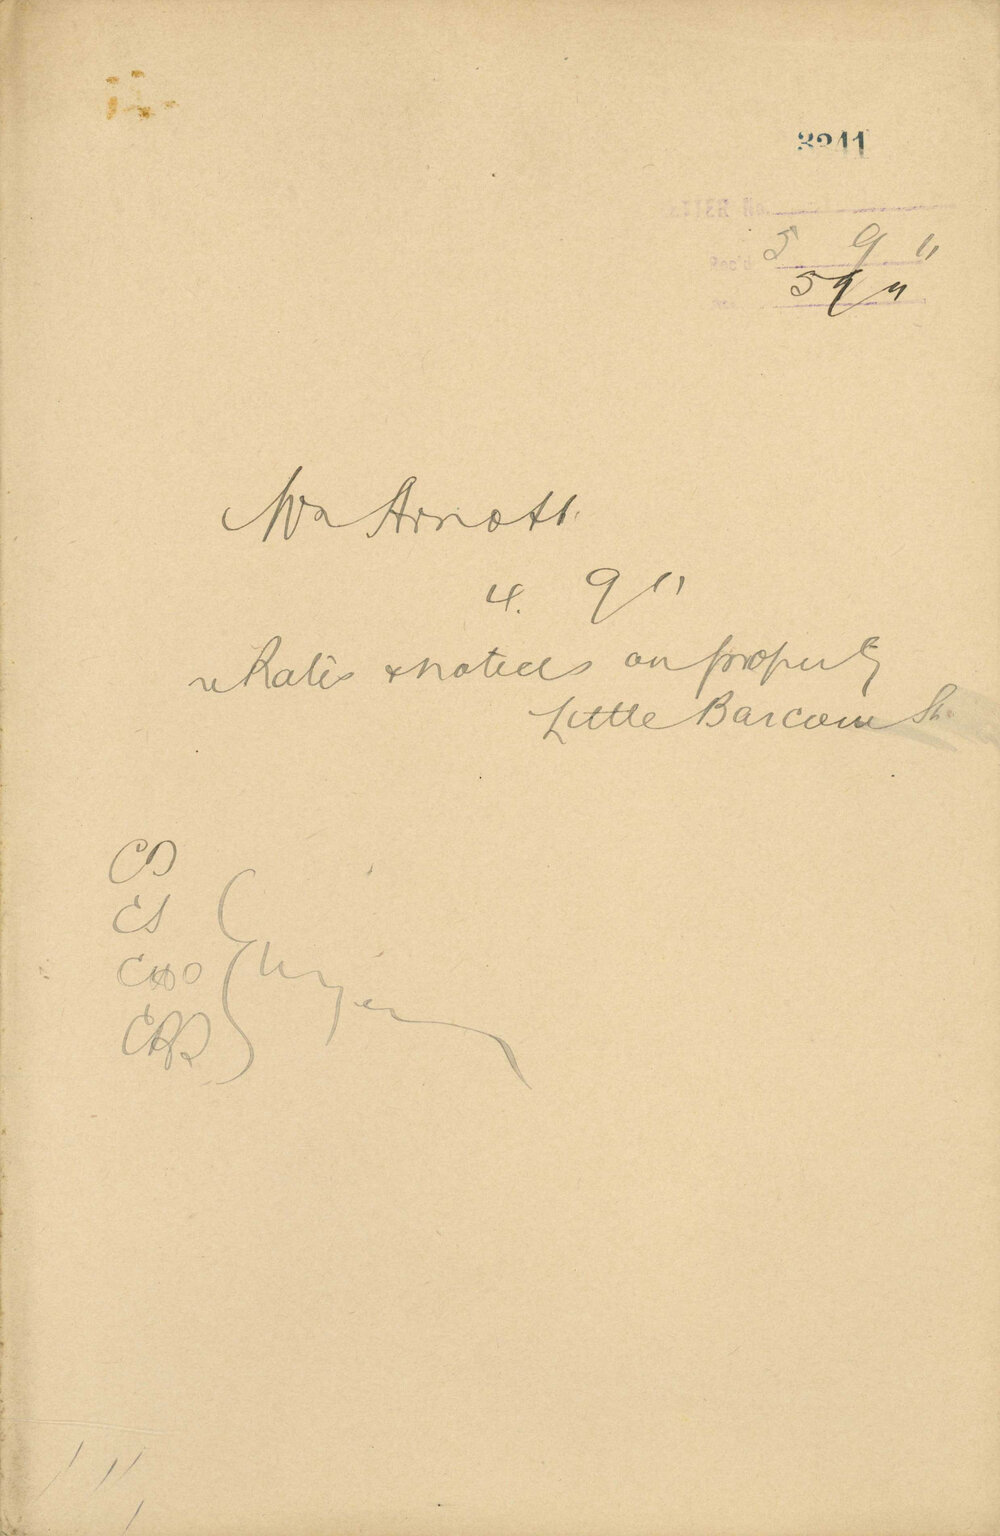 3241
Rec'd 5 9 11
5 9 11
Wm Arnott
4. 9 11
re Rates & notices on property
Little Barcom St.
CS
ES